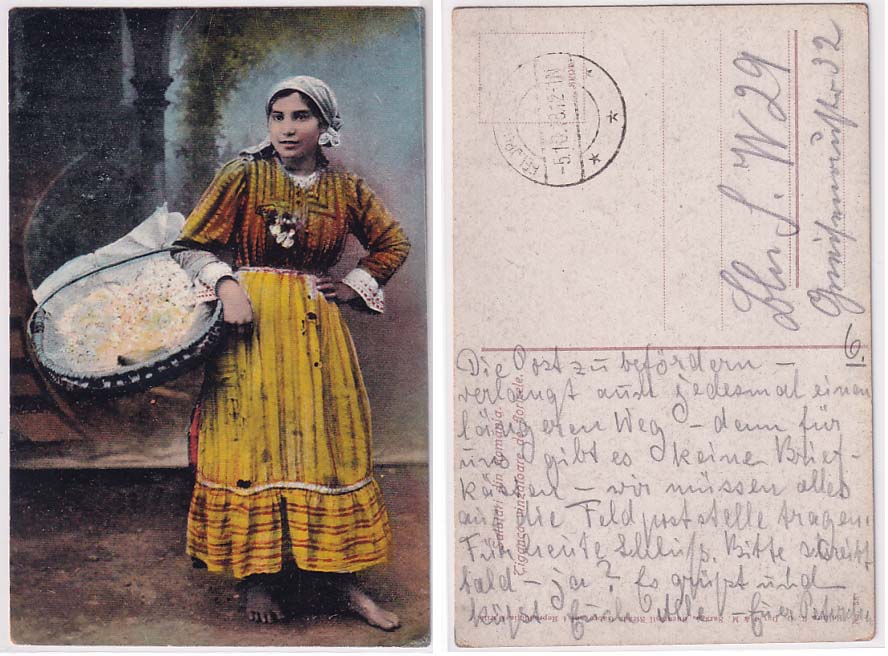 -5.10.18.12-1N
Bln S. W 29
32
6
Die Post zu befördern –
verlangt auch jedesmal einen
längeren Weg – denn für
uns gibt es keine Brief-
kästen – wir müssen alles
auf die Feldpoststelle tragen.
Für heute Schluß. Bitte schreibt
bald – ja? Es grüßt und
küßt Euch alle – Euer
Salutări din România.
Țigancă vînzătoare de floricele.